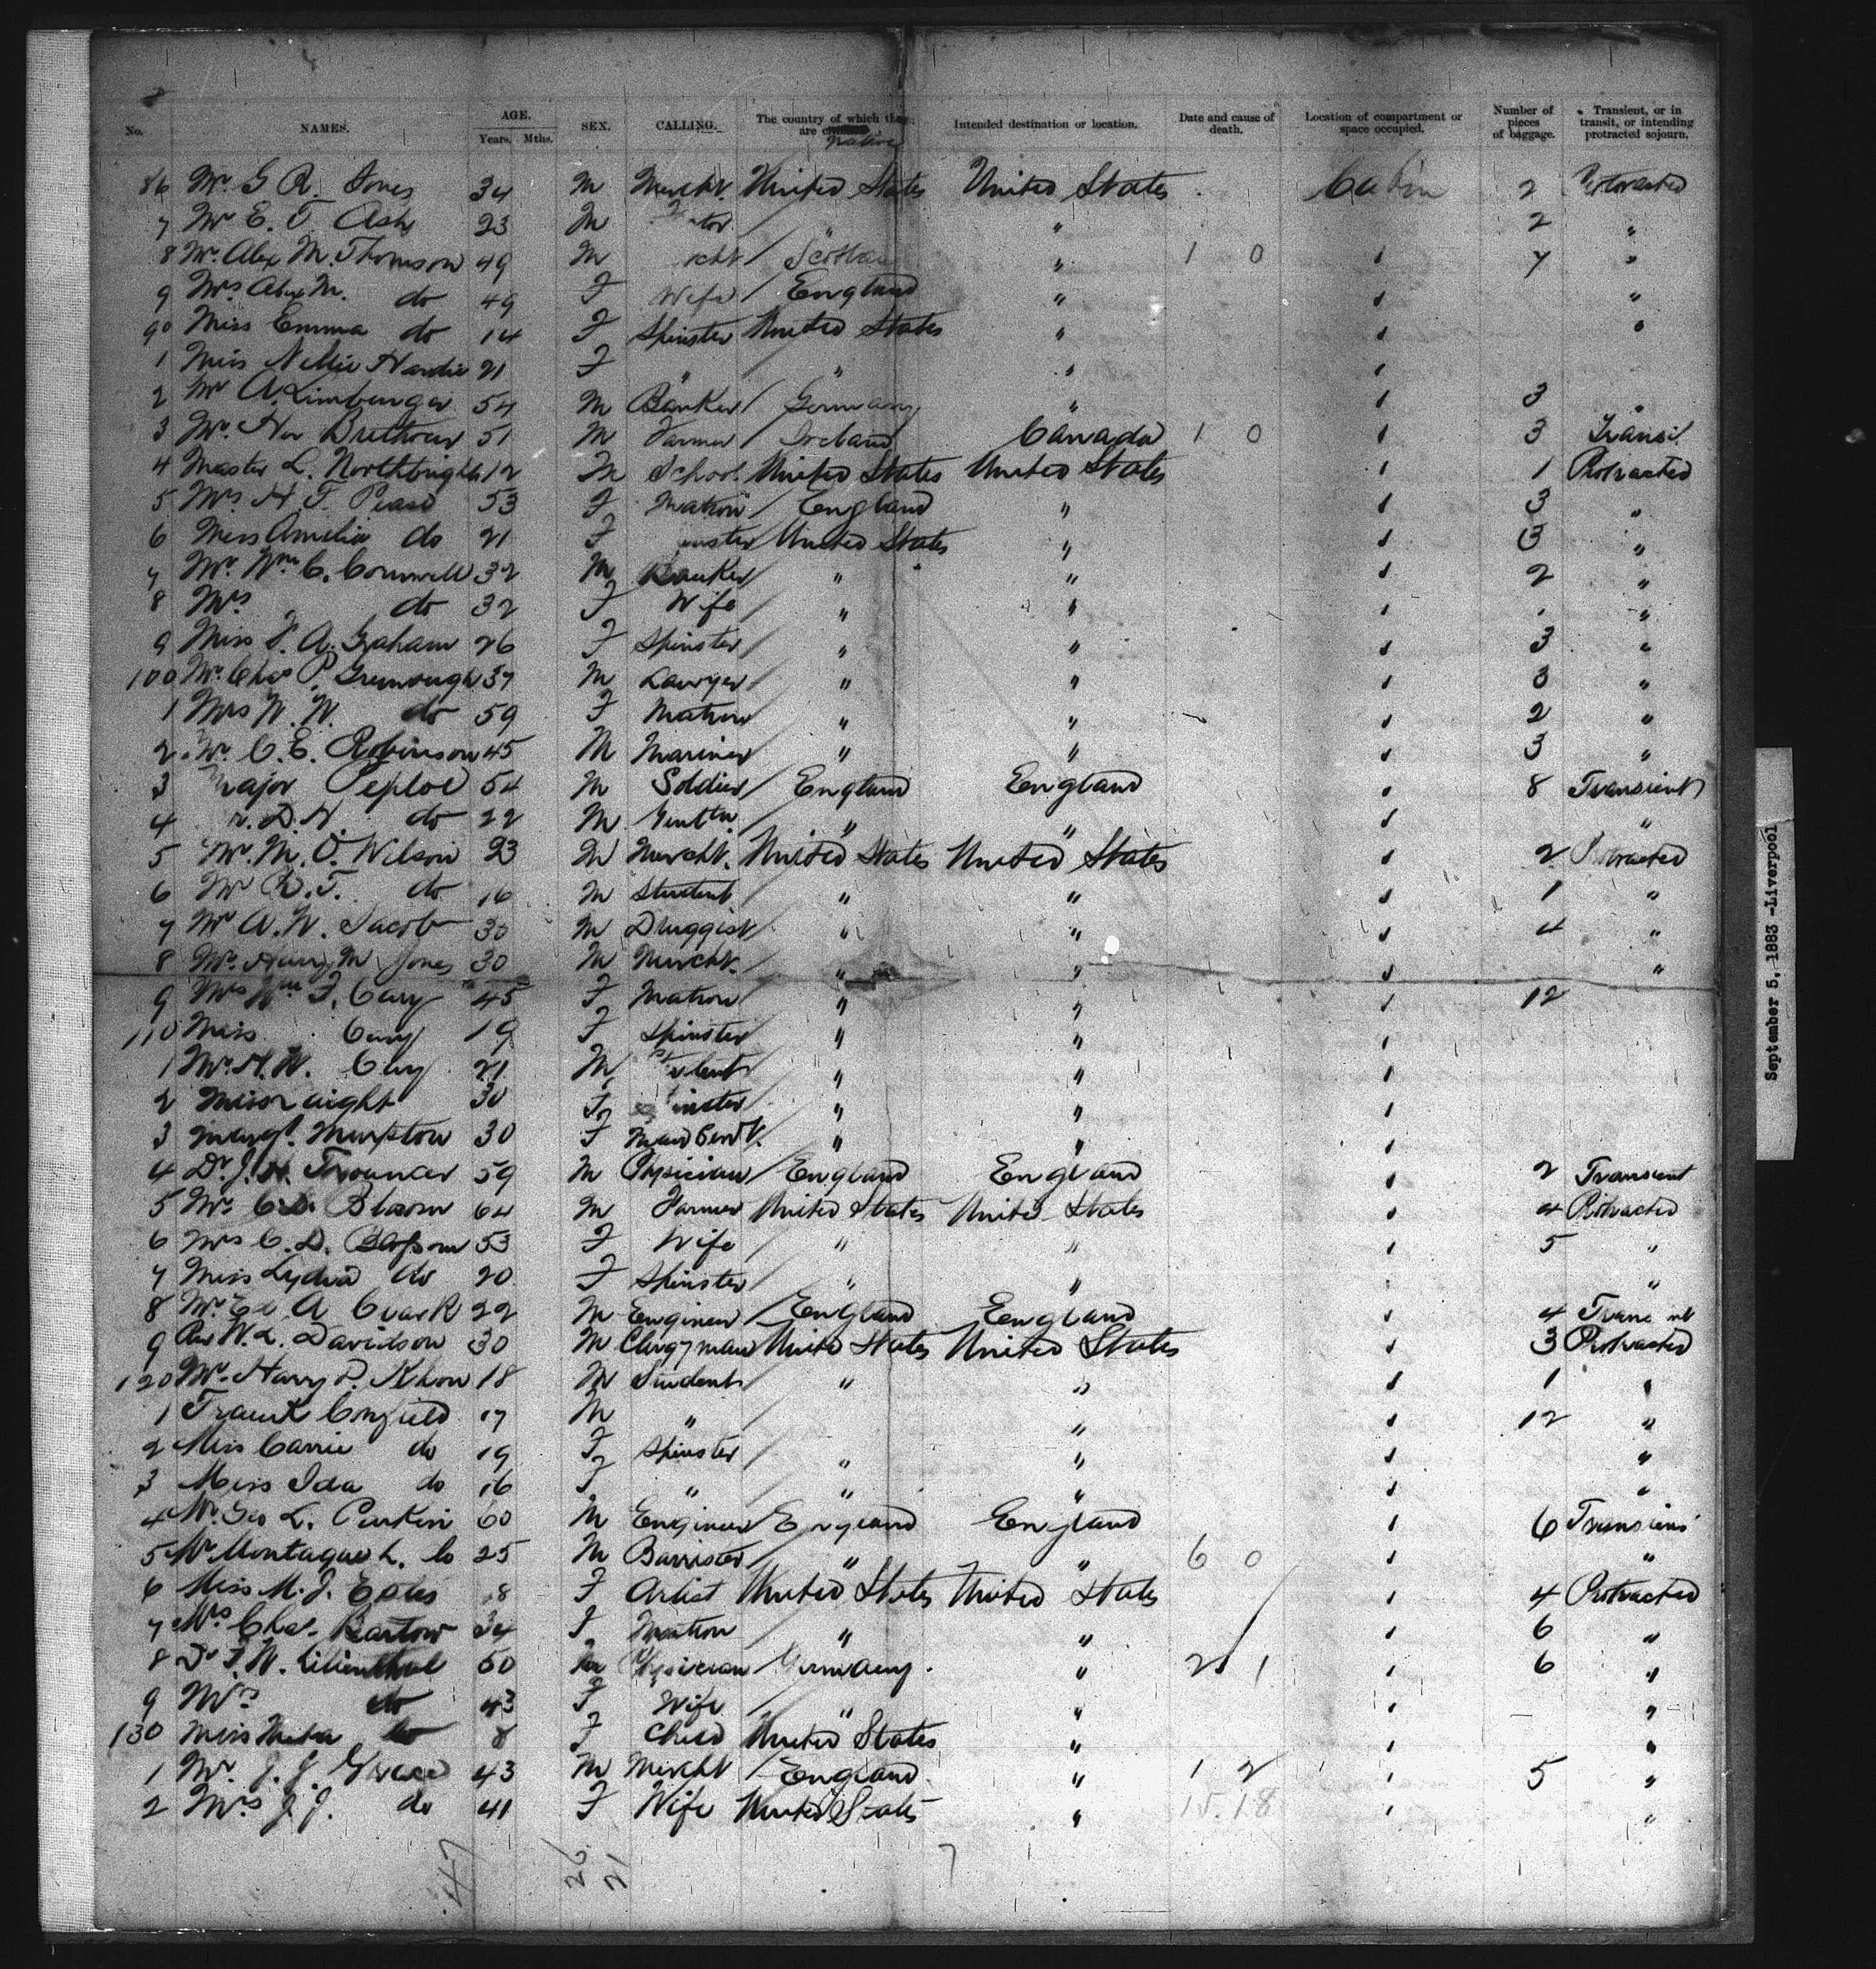 No. NAMES. AGE. Years. Mths. SEX. CALLING. The country of which they are native Intended destination or location. Date and cause of death. Location of compartment or space occupied. Number of pieces of baggage. Transient, or in transit, or intending protracted sojourn.
86 Mr. G R. Jones 34 M Mercht. United States United States Cabin 2 Protracted
7 Mr E. T. Ash 23 M " " 2 "
8 Mr. Alex M. Thomson 49 M Scotland " 1 0 7 "
9 Mrs Alex M. do 49 F Wife England " "
90 Miss Emma do 14 F Spinster United States " "
1 Miss Nellie Hardie 21 F " " "
2 Mr A. Limburger 54 M Banker Germany " 3 "
3 Mr. Hor Brethour 51 M Farmer Ireland Canada 1 0 3 Transit
4 Master L. 12 M School United States United States 1 Protracted
5 Mrs H. T. Pease 53 F Matron England " 3 "
6 Miss Amelia do 21 F United States " 3 "
7 Mr. Wm. C. Cornwell 32 M Banker " " 2 "
8 Mrs " do 32 F Wife " " "
9 Miss A. Graham 26 F Spinster " " 3 "
100 Mr. Chas P. Greenough 37 M Lawyer " " 3 "
1 Mrs W. W. do 59 F Matron " " 2 "
2 Mr. C. E. Robinson 45 M Mariner " " 3 "
3 Major Peploe 54 M Soldier England England 8 Transient
4 D. H. do 22 M Gentn. " " "
5 Mr. M. O. Wilson 23 M Mercht. United States United States 2 Protracted
6 Mr R. T. do 16 M Student " " 1 "
7 Mr A. W. Jacob 30 M Druggist " " 4 "
8 Mr. Harry M Jones 30 M Mercht. " " "
9 Mrs Wm F. Cary 45 F Matron " " 12
110 Miss Cary 19 F Spinster " "
1 Mr. H. W. Cary 21 M Student " "
2 Miss 30 F " "
3 Margt. 30 F Maid Servt. " "
4 Dr. J. H. Trouncer 59 M Physician England England 2 Transient
5 Mr. C. D. Blossom 64 M Farmer United States United States 4 Protracted
6 Mrs C. D. Blossom 53 F Wife " " 5 "
7 Miss Lydia do 20 F Spinster " " "
8 Mr. A Clark 22 M Engineer England England 4 Transient
9 Rev W. L. Davidson 30 M Clergyman United States United States 3 Protracted
120 Mr. Harry D. 18 M Student " " 1 "
1 Frank Canfield 17 M " " 12 "
2 Miss Carrie do 19 F Spinster " " "
3 Miss Ida do 16 F " " " "
4 Mr. Geo L. Parkin 60 M Engineer England England 6 Transient
5 Mr Montague L. do 25 M Barrister " " 6 0 "
6 Miss M. J. 18 F Artist United States United States 4 Protracted
7 Mrs Chas. Bartow 34 F Matron " " 6 "
8 Dr F. W. Lilienthal 50 M Physician Germany " 2 1 6 "
9 Mrs do 43 F Wife " " "
130 Miss Meta do 8 F Child United States " "
1 Mr. J. J. Grace 43 M Mercht England " 1 2 5 "
2 Mrs J. J. do 41 F Wife United States " 15.18 "
47 26 21 7
September 5, 1883 -Liverpool